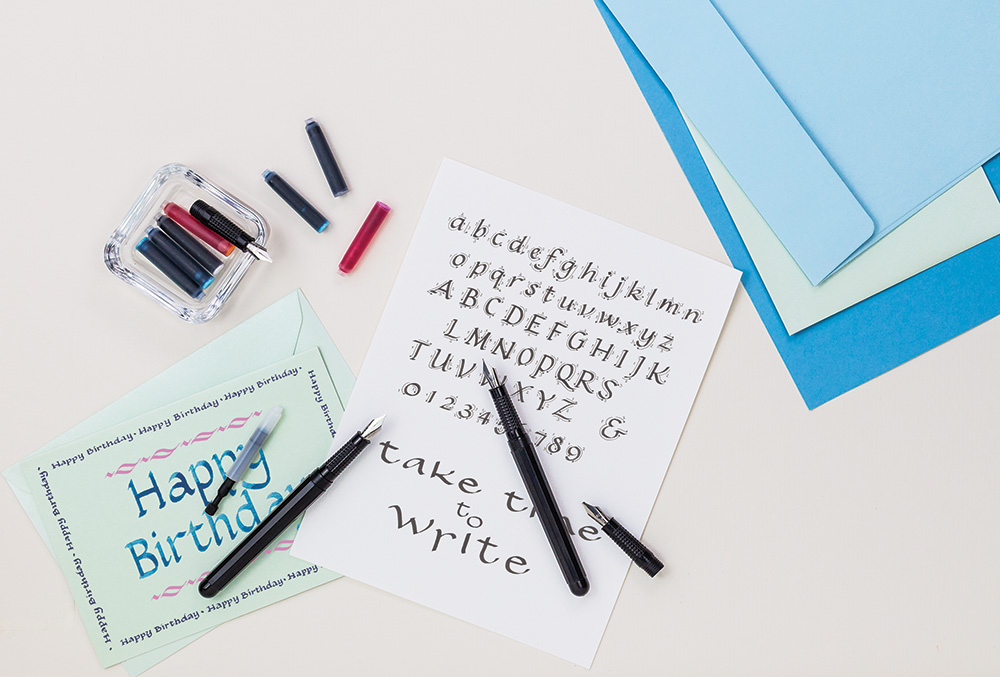 a b c d e f g h i j k l m n
o p q r s t u v w x y z
A B C D E F G H I J K
L M N O P Q R S
T U V X Y Z &
0 1 2 3 4 5 6 7 8 9
take time
to
write
Happy Birthday · Happy Birthday · Happy Birthday ·
Happy Birthday
Happy Birthday · Happy Birthday · Happy Birthday ·
Happy
Birthday
Happy Birthday · Happy Birthday · Happy Birthday